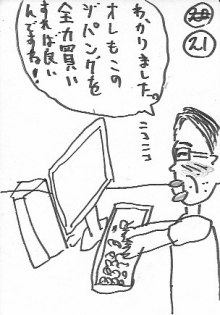 21
わかりました。
オレもこの
ジパングを
全力買い
すれば良い
んですね!
ニコニコ